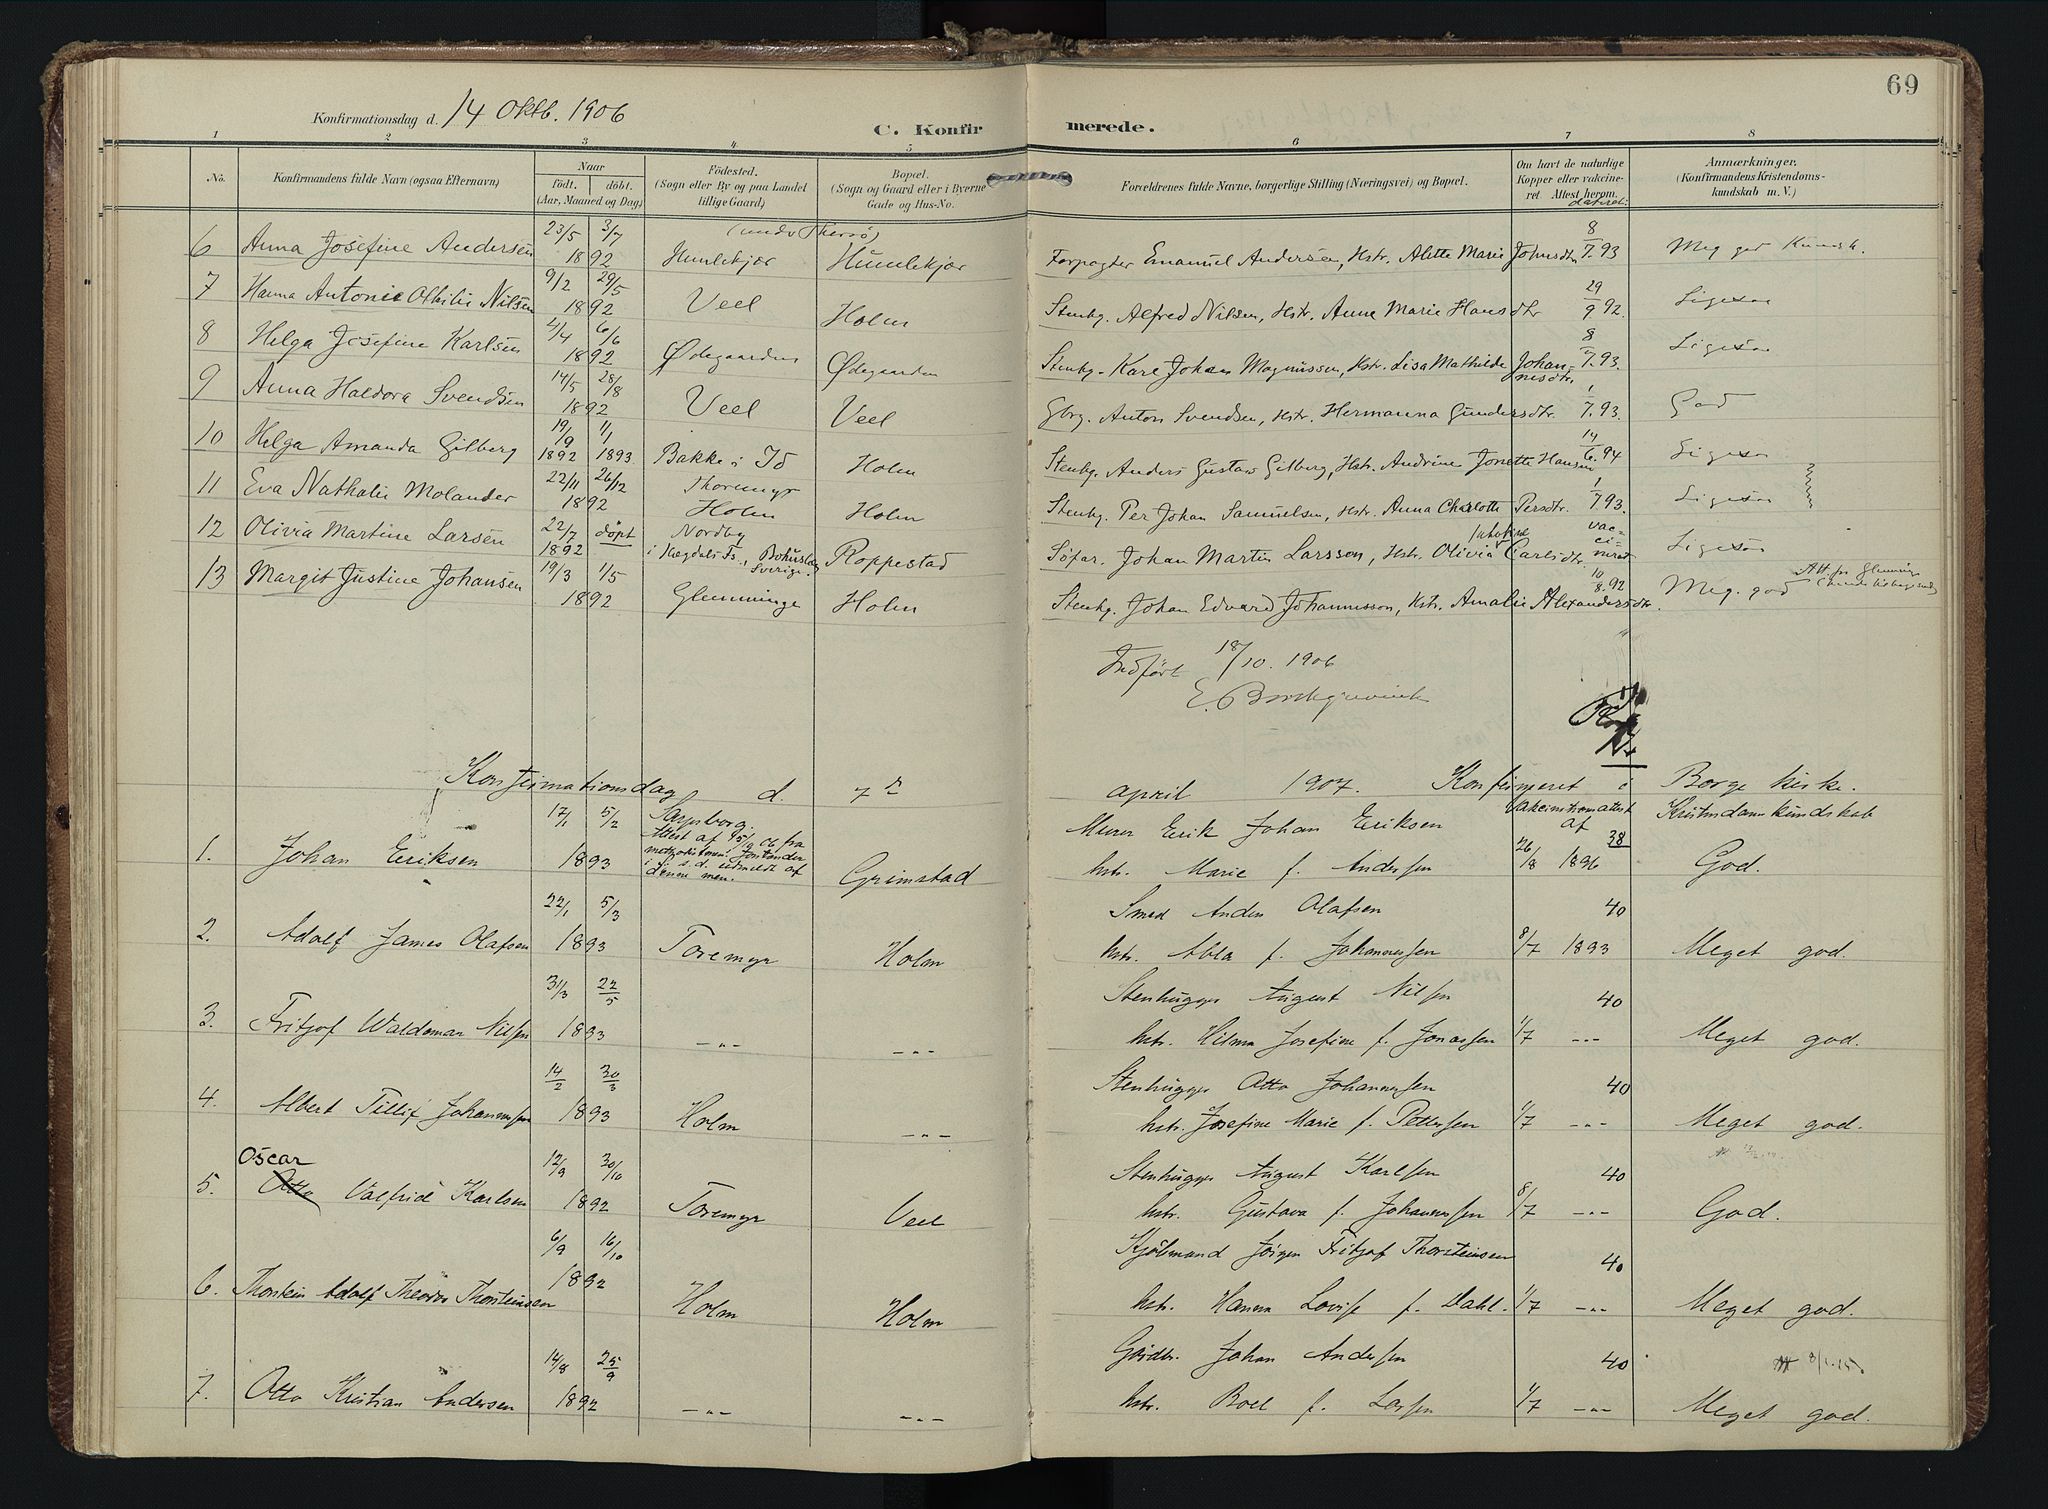 69
Konfirmationsdag d. 14 Oktb. 1906
C. Konfirmerede.
1 2 3 4 5 6 7 8
No.
Konfirmandens fulde Navn (ogsaa Efternavn)
Naar
födt. döbt.
(Aar, Maaned og Dag)
Födested.
(Sogn eller By og paa Landet
tillige Gaard)
Bopæl.
(Sogn og Gaard eller i Byerne
Gade og Hus-No.
Forældrenes fulde Navne, borgerlige Stilling (Næringsvei) og Bopæl.
Om havt de naturlige
Kopper eller vakcine-
ret Attest herom.
dateret:
Anmærkninger.
(Konfirmandens Kristendoms-
kundskab m. V.)
6 Anna Josefine Andersen 23/5 3/7 1892 Humlekjær Humlekjær Forpagter Emanuel Andersen, Hstr. Alette Marie Johnsdtr 8/7.93 Meg god Kundsk.
7 Hanna Antonie Othilie Nilsen 9/2 29/5 1892 Veel Holm Stenhg. Alfred Nilsen, Hstr. Anne Marie Hansdtr 29/9 92. Ligesaa
8 Helga Josefine Karlsen 4/4 6/6 1892 Ødegaarden Ødegaarden Stenhg. Karl Johan Magnussen, Hstr. Lisa Mathilde Johannisdtr. 8/7.93. Ligesaa
9 Anna Haldora Svendsen 14/5 28/8 1892 Veel Veel Gbrg. Anton Svendsen, Hstr. Hermanna Gundersdtr. 1/7.93. God
10 Helga Amanda Gilberg 19/9 1892 1/1 1893 Bakke i Id Holm Stenhg. Anders Gustav Gilberg, Hstr. Andrine Jonette Hansen 14/6.94 Ligesaa
11 Eva Nathalie Molander 22/11 26/12 1892 Thoremyr Holm Holm Stenhg. Per Johan Samuelsen, Hstr. Anna Charlotte Persdtr. 1/7.93. Ligesaa
12 Olivia Martine Larsen 22/7 döpt 1892 Nordby Bohuslen Sverige. Roppestad Söfar. Johan Martin Larsson, Hstr. Olivia Carlsdtr. vaccinerat Ligesaa
13 Margit Justine Johansen 19/3 1/5 1892 Glemminge Holm Stenhg. Johan Edvard Johannisson, Hstr. Amalie Alexandersdtr. 10/8.92 Meg. god
Indført 18/10. 1906
E. Borchgrevink
Konfirmationsdag d. 7de april 1907. Konfirmeret i Borge kirke.
Vakcinationsattest af Kristendomskundskab
1. Johan Eriksen 17/1 5/2 1893 Sarpsborg. Grimstad
Murer Erik Johan Eriksen 38
hstr. Marie f. Andersen 26/8 1896 God.
2. Adolf James Olafsen 22/1 5/3 1893 Toremyr Holm
Smed Anders Olafsen 40
hstr. Abla f. Johannessen 8/7 1893 Meget god.
3. Fritjof Waldemar Nilsen 31/3 22/5 1893 -"- -"-
Stenhugger August Nilsen 40
hstr. Hilma Josefine f. Jonassen 1/7 -"- Meget god.
4. Albert Tellif Johannessen 14/2 30/3 1893 Holm -"-
Stenhugger Otto Johannessen 40
hstr. Josefine Marie f. Pettersen 1/7 -"- Meget god.
Oscar
5. Otto Valfrid Karlsen 12/9 30/10 1892 Toremyr Veel
Stenhugger August Karlsen 40
hstr. Gustava f. Johannessen 8/7 -"- God.
6. Thorstein Adolf Theodor Thorsteinsen 6/9 16/10 1892 Holm Holm
Kjölmand Jörgen Fritjof Thorsteinsen 40
hstr. Hanna Lovise f. Dahl. 1/7 -"- Meget god.
7. Otto Kristian Andersen 14/8 25/9 1892 -"- -"-
Gårdbr. Johan Andersen 40
hstr. Boel f. Larsen 1/7 -"- Meget god.